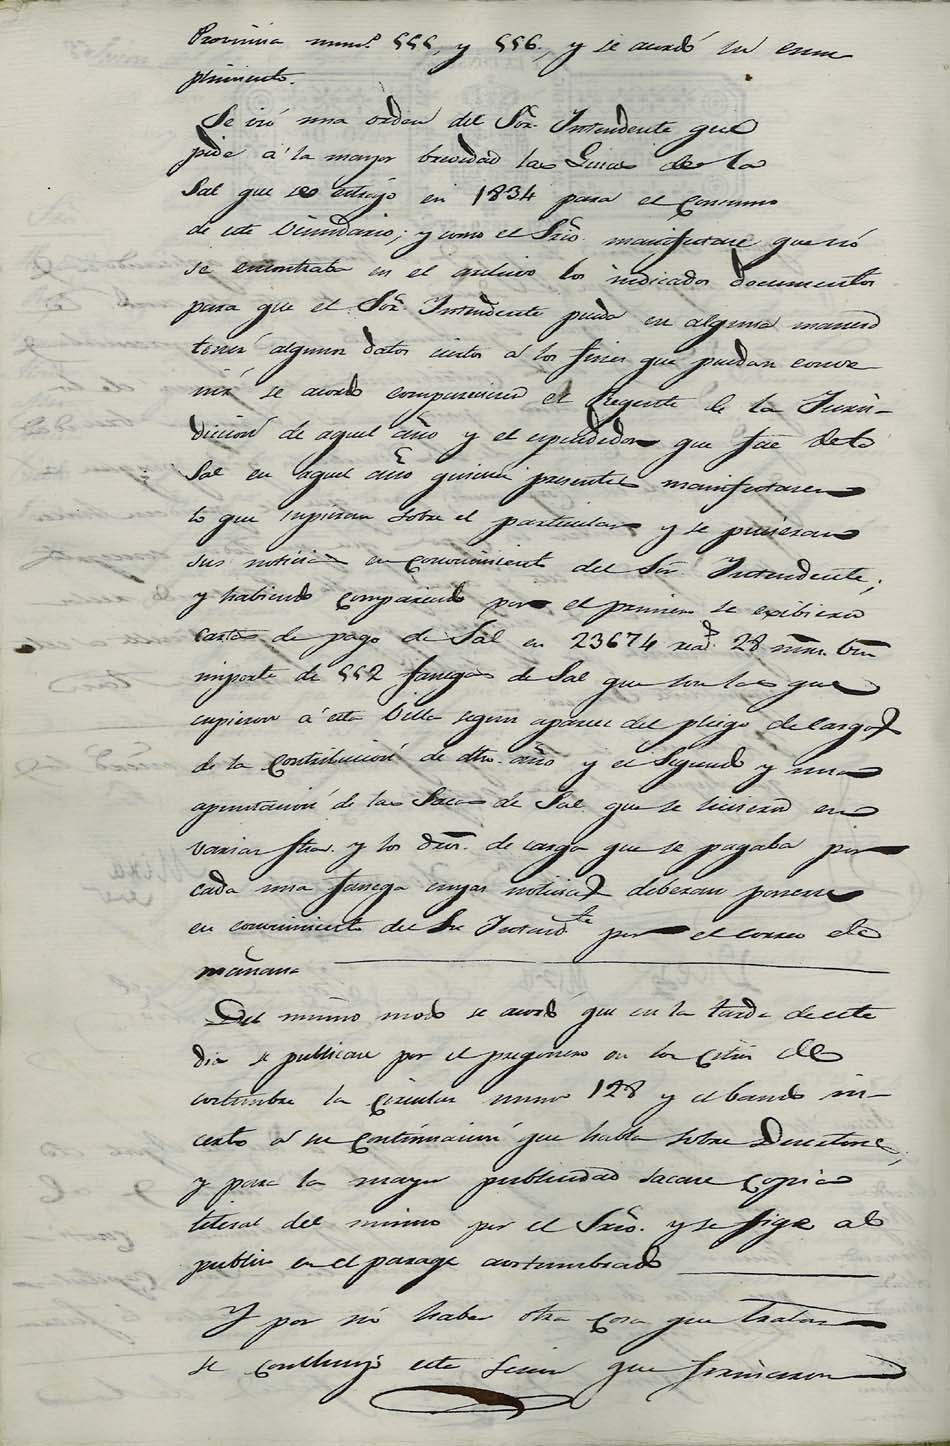 Provincia num.º 555, y 556, y se acordó su cum
plimiento.
Se vió una orden del Sõr. Intendente que
pide á la mayor brevedad las Guias de la
Sal que se estrajo en 1834 para el consumo
de este Vecindario; y como el Srio. manifestase que nó
se encontraba en el archivo los indicados documentos
para que el Sõr. Intendente pueda en alguna manera
tener algunos datos ciertos á los fines que puedan conve
nir se acordó compareciera el Regente de la Juris-
dicion de aquel año y el espendedor que fue de la
Sal en aquel año quienes presentes manifestaren
lo que supieran sobre el particular y se pusieran
sus noticias en conocimiento del Sõr. Intendente;
y habiendo comparecido por el primero se exibieron
cartas de pago de Sal en 23674 rea.s 28 mrs. vn
importe de 552 fanegas de Sal que son las que
cupieron á esta Villa segun aparece del pliego de cargos
de la contribucion de dho. año y el Segundo y una
apuntacion de las Sacas de Sal que se hicieron en
varias fhas. y los dros. de carga que se pagaba por
cada una fanega cuyas noticias deberan ponerse
en conocimiento del Sr Intend.te por el correo de
mañana
Del mismo modo se acordó que en la tarde de este
dia se publicase por el pregonero en los citios de
costumbre la circular numo 128 y el bando in-
certo á su continuacion que habla sobre Desertores,
y para la mayor publicidad sacase copia
literal del mismo por el Srio. y se fige al
publico en el parage acostumbrado
Y por nó haber otra cosa que tratar
se concluyó esta Sesion que firmaron